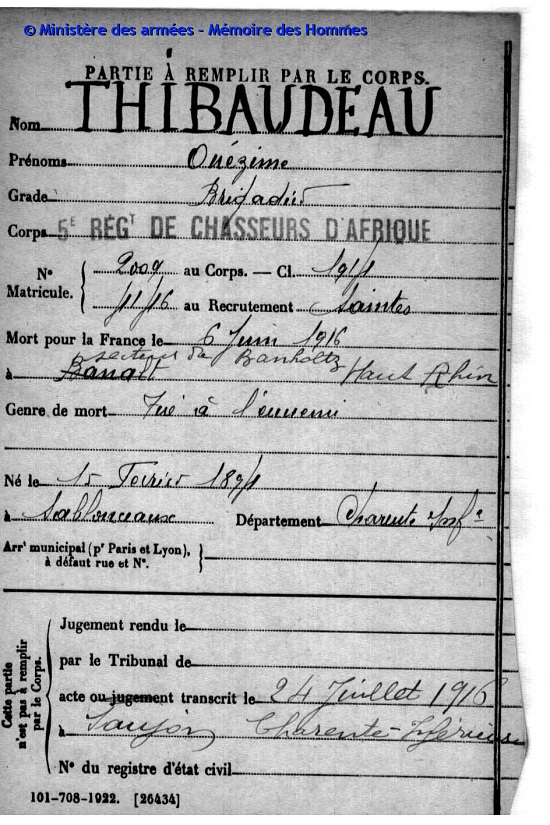 © Ministère des armées - Mémoire des Hommes
PARTIE À REMPLIR PAR LE CORPS.
Nom THIBAUDEAU
Prénoms Onézime
Grade Brigadier
Corps 5E RÉGT DE CHASSEURS D'AFRIQUE
N° Matricule. { 2009 au Corps. — Cl. 1911
1116 au Recrutement Saintes
Mort pour la France le 6 Juin 1916
secteur de Banholtz
à Haut Rhin
Genre de mort Tué à l'ennemi
Né le 15 Février 1891
à Sablonceaux Département Charente Infre
Arrt municipal (pr Paris et Lyon), à défaut rue et N°. }
Cette partie n'est pas à remplir par le Corps.
Jugement rendu le
par le Tribunal de
acte ou jugement transcrit le 24 Juillet 1916
à Saujon Charente-Inférieure
N° du registre d'état civil
101-708-1922. [26434]